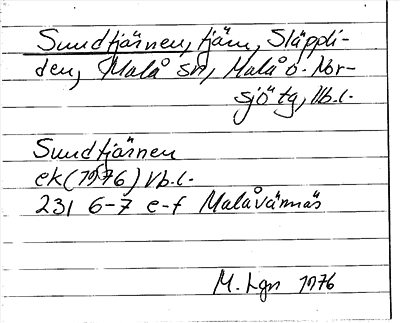 Sundtjärnen, tjärn, Släppli-
den, Malå sn, Malå o. Nor-
sjö tg, Vb.l.
Sundtjärnen
ek (1976) Vb.l.
231 6-7 e-f Malåvännäs
M. Lgn 1976